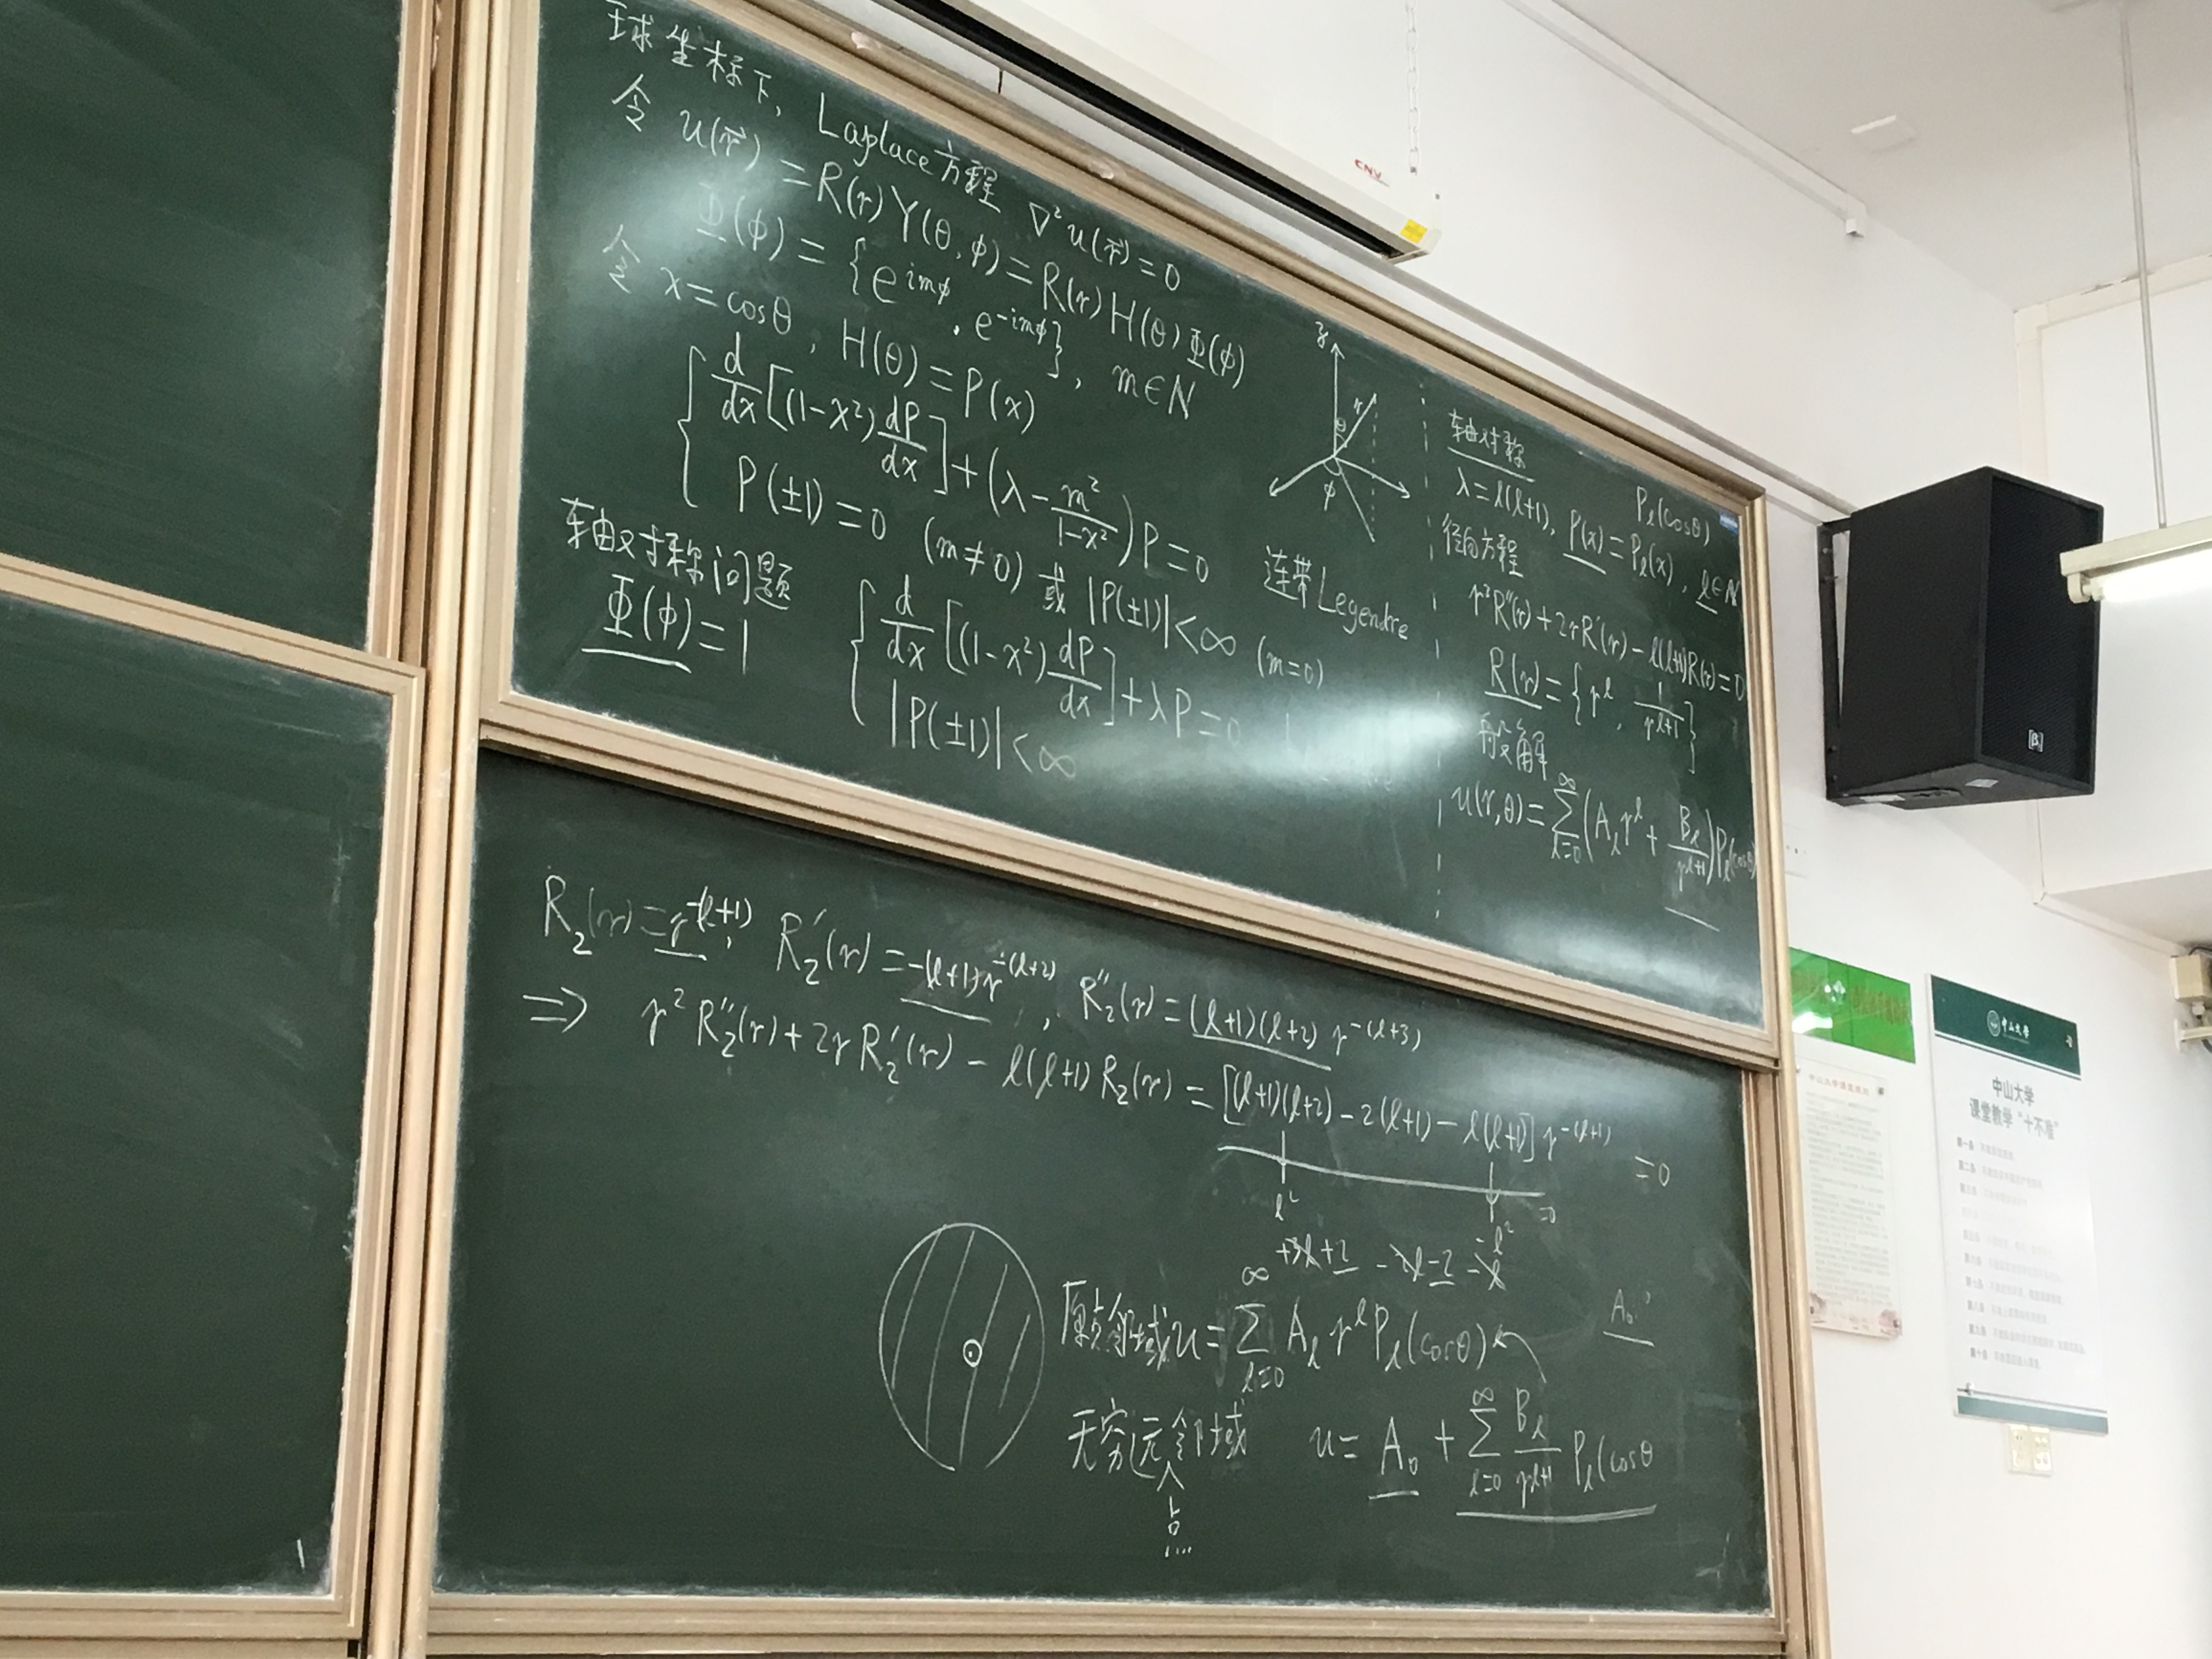 球坐标下, Laplace方程 ∇²u(r⃗)=0
令 u(r⃗)=R(r)Y(θ,φ)=R(r)H(θ)Φ(φ)
Φ(φ)={e^{imφ}, e^{-imφ}}, m∈N
令 x=cosθ, H(θ)=P(x)
d/dx[(1-x²)dP/dx]+(λ-m²/(1-x²))P=0
P(±1)=0 (m≠0) 或 |P(±1)|<∞ (m=0)
连带Legendre
轴对称问题
Φ(φ)=1
d/dx[(1-x²)dP/dx]+λP=0
|P(±1)|<∞
z
θ
r
φ
轴对称
P_l(cosθ)
λ=l(l+1), P(x)=P_l(x), l∈N
径向方程
r²R''(r)+2rR'(r)-l(l+1)R(r)=0
R(r)={r^l, 1/r^{l+1}}
般解
u(r,θ)=∑_{l=0}^{∞}(A_l r^l+B_l/r^{l+1})P_l(cosθ)
R₂(r)=r^{-(l+1)}, R₂'(r)=-(l+1)r^{-(l+2)}, R₂''(r)=(l+1)(l+2)r^{-(l+3)}
⇒ r²R₂''(r)+2rR₂'(r)-l(l+1)R₂(r)=[(l+1)(l+2)-2(l+1)-l(l+1)]r^{-(l+1)}=0
=0
l² -l²
+3l+2 -2l-2 -l
原点邻域u=∑_{l=0}^{∞}A_l r^l P_l(cosθ)
A₀
无穷远邻域 u=A₀+∑_{l=0}^{∞}B_l/r^{l+1} P_l(cosθ
点
CNV
[β]
中山大学
中山大学
课堂教学“十不准”
第一条
第二条
第三条
第五条
第六条
第七条
第八条
第九条
第十条